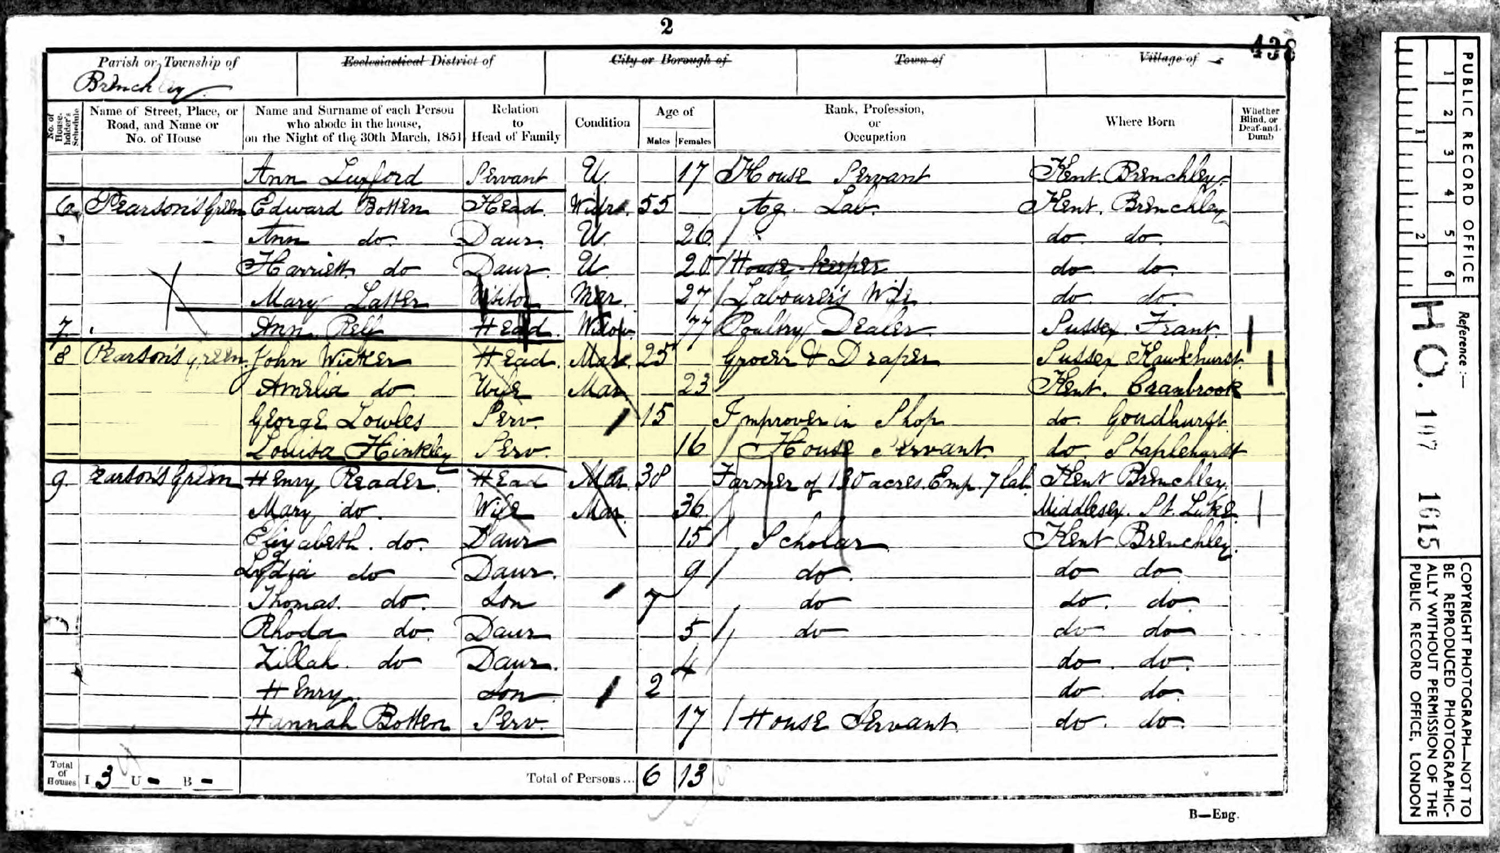 2
438
Parish or Township of
Brenchley
Ecclesiastical District of
City or Borough of
Town of
Village of
No. of House-holder's Schedule
Name of Street, Place, or Road, and Name or No. of House
Name and Surname of each Person who abode in the house, on the Night of the 30th March, 1851
Relation to Head of Family
Condition
Age of
Males
Females
Rank, Profession, or Occupation
Where Born
Whether Blind, or Deaf-and-Dumb
Ann Luxford Servant U. 17 House Servant Kent. Brenchley.
6 Pearson's Green Edward Botten Head Widr. 55 Ag. Lab. Kent. Brenchley
Ann do. Daur. U. 26 do. do.
Harriett do Daur. U. 20 House keeper do. do.
Mary Latter Visitor Mar. 27 Labourer's Wife do. do.
7 Ann Head Widow 77 Poultry Dealer Sussex Frant
8 Pearson's Green John Wicker Head. Mar. 25 Grocer & Draper Sussex Hawkhurst
Amelia do Wife Mar. 23 Kent. Cranbrook
George Lowles Serv. 15 Improver in Shop do. Goudhurst.
Louisa Hinkley Serv. 16 House Servant do. Staplehurst
9 Pearson's Green Henry Reader. Head Mar. 38 Farmer of 130 acres. Emp. 7 lab. Kent Brenchley.
Mary do. Wife Mar. 36 Middlesex. St. Luke.
Elizabeth. do. Daur 15 Scholar Kent Brenchley.
Lydia do Daur. 9 do. do do.
Thomas. do. Son 7 do do. do.
Rhoda do. Daur 5 do do do
Zillah. do Daur. 4 do. do.
Henry. Son 2 do do.
Hannah Botten Serv. 17 House Servant do. do.
Total of Houses I 3 U - B -
Total of Persons... 6 13
B—Eng.
PUBLIC RECORD OFFICE
1 2 3 4 5 6
1 2
Reference :—
HO. 107 1615
COPYRIGHT PHOTOGRAPH—NOT TO BE REPRODUCED PHOTOGRAPHIC-ALLY WITHOUT PERMISSION OF THE PUBLIC RECORD OFFICE, LONDON